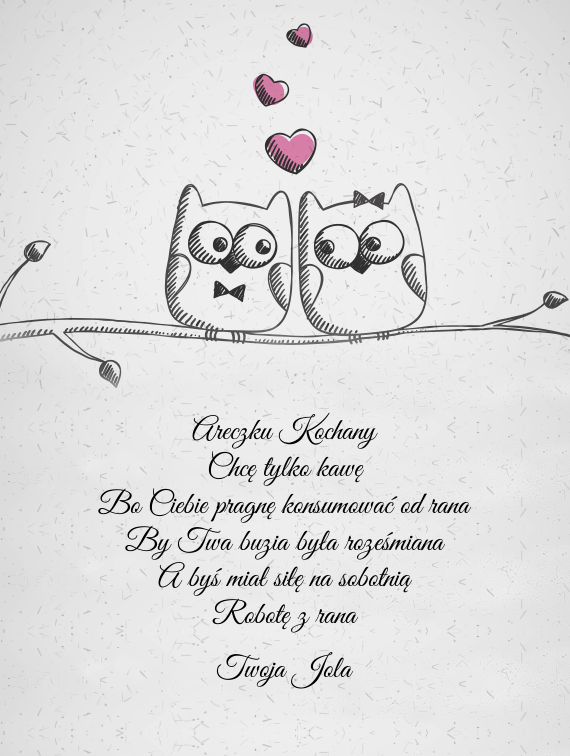 Areczku Kochany
Chcę tylko kawę
Bo Ciebie pragnę konsumować od rana
By Twa buzia była roześmiana
A byś miał siłę na sobotnią
Robotę z rana
Twoja Jola